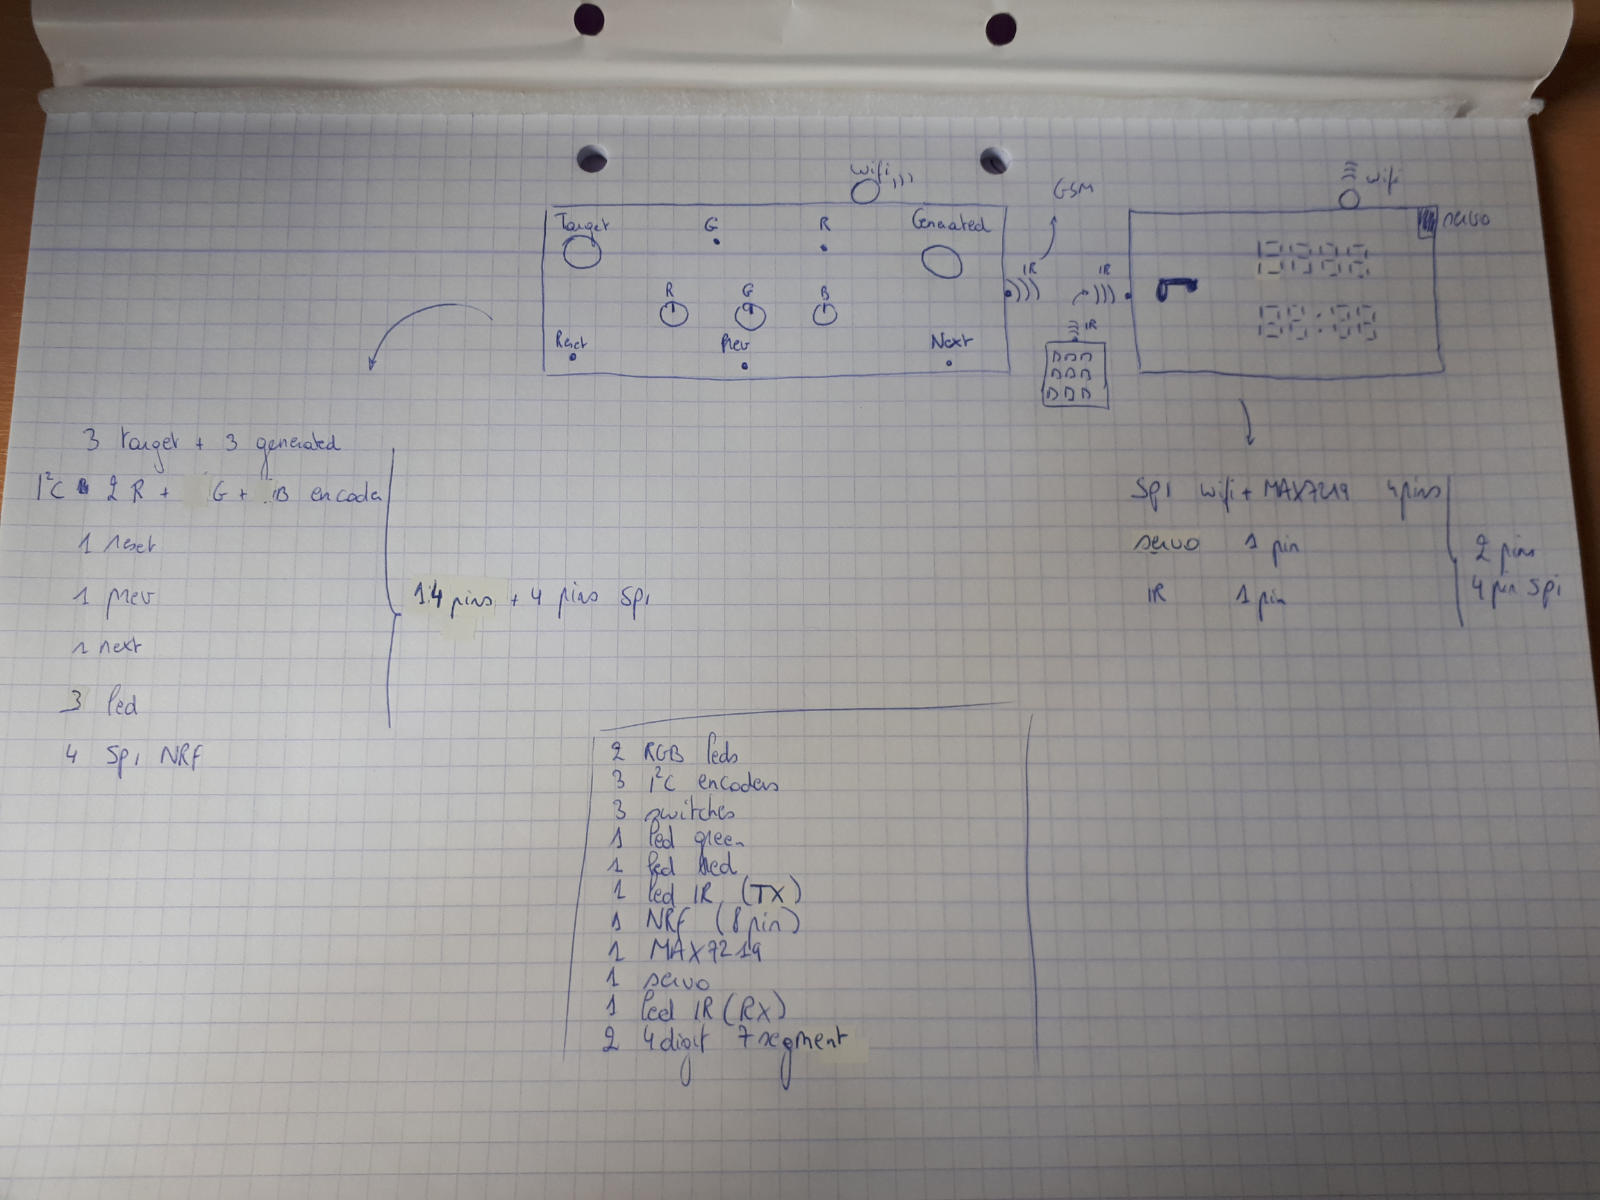 Wifi
GSM
wifi
Target
G
R
Generated
servo
IR
IR
R
G
B
IR
Reset
Prev
Next
3 target + 3 generated
I²C 2 R + G + B encoder
1 reset
1 prev
1 next
3 led
4 Spi NRF
14 pins + 4 pins Spi
Spi wifi + MAX7219 4 pins
servo 1 pin
IR 1 pin
2 pins
4 pin Spi
2 RGB leds
3 I²C encoders
3 switches
1 led green
1 led red
1 led IR (TX)
1 NRF (8 pin)
1 MAX7219
1 servo
1 led IR (RX)
2 4 digit 7 segment